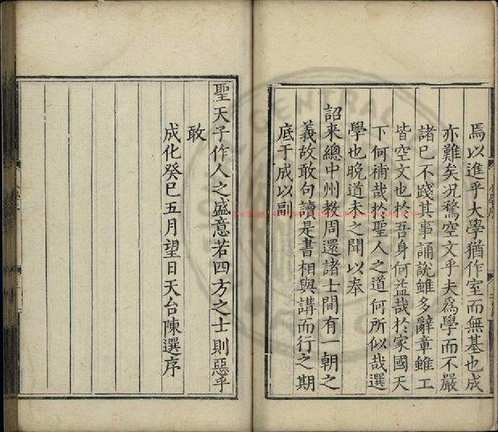 焉以進乎大學猶作室而無基也成
亦難矣况騖空文乎夫爲學而不嚴
諸己不踐其事誦說雖多辭章雖工
皆空文也於吾身何益哉於家國天
下何補哉於聖人之道何所似哉選
學也晚道未之聞以奉
詔来總中州教周還諸士間有一朝之
義故敢句讀是書相與講而行之期
底于成以副
聖天子作人之盛意若四方之士則惡乎
敢
成化癸巳五月望日天台陳選序